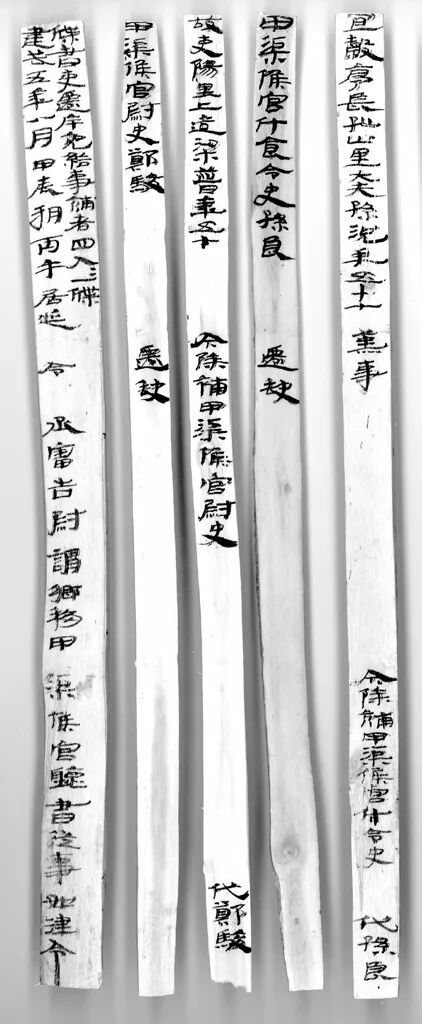 宜穀亭長孤山里大夫孫況年五十七 薰事 今除補甲渠候官斗令史 代孫良
甲渠候官斗食令史孫良 遷缺
故吏陽里上造梁普年五十 今除補甲渠候官尉史 代鄭駿
甲渠候官尉史鄭駿 遷缺
牒書吏遷斥免給事補者四人人一牒
建武五年八月甲辰朔丙午居延令 丞審告尉謂鄉移甲渠候官聽書從事如律令